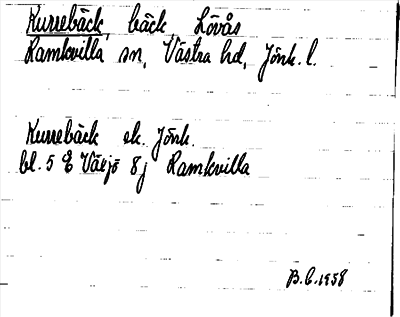 Kurrebäck, bäck, Lövås
Ramkvilla sn, Västra hd, Jönk. l.
Kurrebäck ek. Jönk.
bl. 5 E Växjö 8j Ramkvilla
B.C. 1958